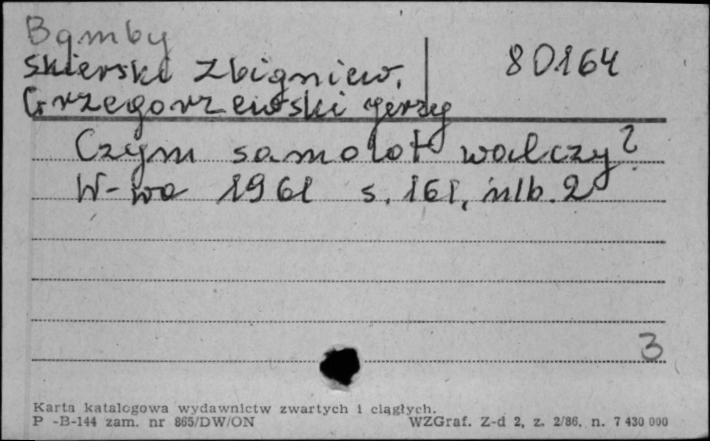 Bomby
Skierski Zbigniew, 80164
Grzegorzewski Jerzy
Czym samolot walczy?
W-wa 1961 s. 161, nlb. 2
3
Karta katalogowa wydawnictw zwartych i ciągłych.
P -B-144 zam. nr 865/DW/ON WZGraf. Z-d 2, z. 2/86. n. 7 430 000